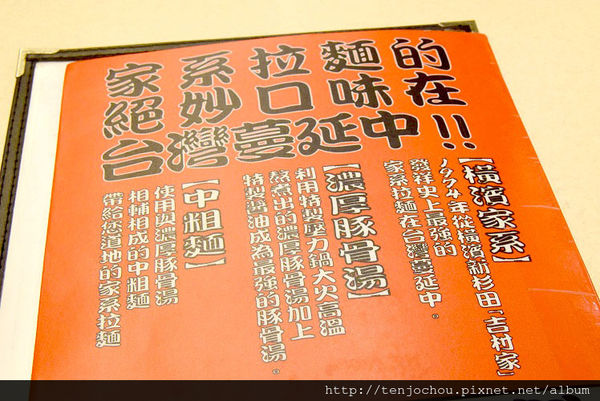 家系拉麵的
絕妙口味在
台灣蔓延中!!
【橫濱家系】
1974年從橫濱新杉田「吉村家」
發祥史上最強的
家系拉麵在台灣蔓延中。
【濃厚豚骨湯】
利用特製壓力鍋大火高溫
熬煮出的濃厚豚骨湯加上
特製醬油成為最強的豚骨湯。
【中粗麵】
使用與濃厚豚骨湯
相輔相成的中粗麵
帶給您道地的家系拉麵
http://tenjochou.pixnet.net/album